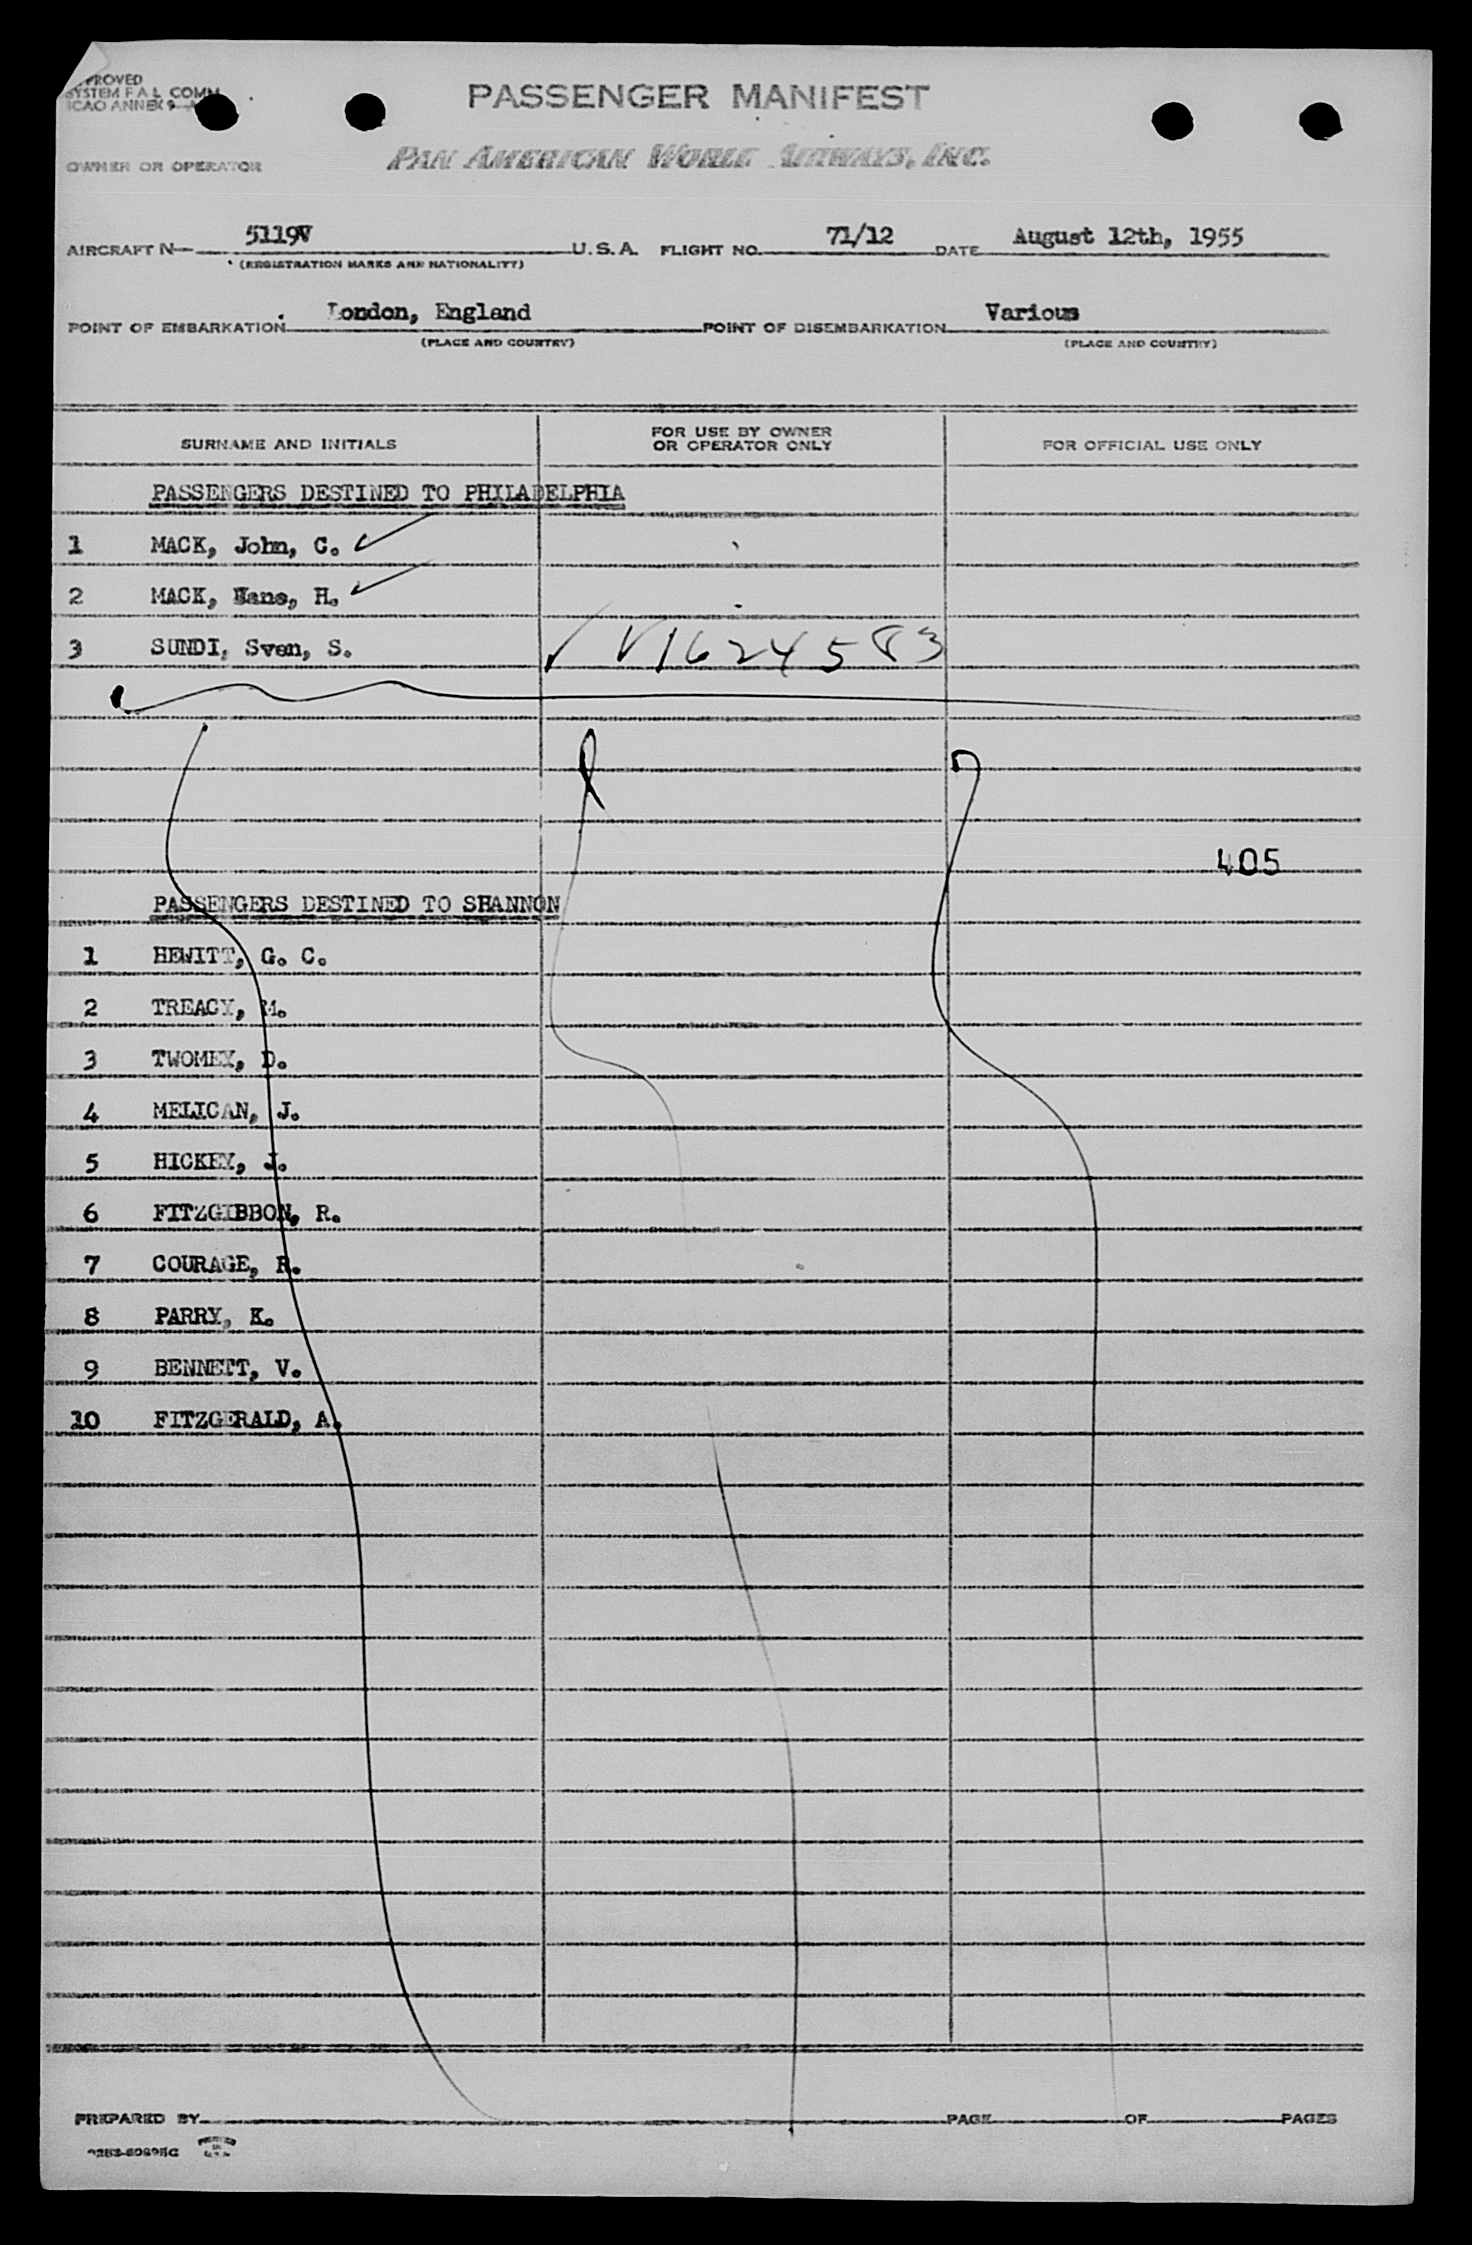 PROVED
SYSTEM F A L COMM
ICAO ANNEX 9
PASSENGER MANIFEST
OWNER OR OPERATOR PAN AMERICAN WORLD AIRWAYS, INC.
AIRCRAFT N— 5119V U.S.A. FLIGHT NO. 71/12 DATE August 12th, 1955
(REGISTRATION MARKS AND NATIONALITY)
POINT OF EMBARKATION London, England POINT OF DISEMBARKATION Various
(PLACE AND COUNTRY) (PLACE AND COUNTRY)
SURNAME AND INITIALS FOR USE BY OWNER OR OPERATOR ONLY FOR OFFICIAL USE ONLY
PASSENGERS DESTINED TO PHILADELPHIA
1 MACK, John, C. ✓
2 MACK, Hans, H. ✓
3 SUNDI, Sven, S. ✓ V1624583
405
PASSENGERS DESTINED TO SHANNON
1 HEWITT, G. C.
2 TREACY, M.
3 TWOMEY, D.
4 MELICAN, J.
5 HICKEY, J.
6 FITZGIBBON, R.
7 COURAGE, R.
8 PARRY, K.
9 BENNETT, V.
10 FITZGERALD, A.
PREPARED BY PAGE OF PAGES
PRINTED IN U.S.A.